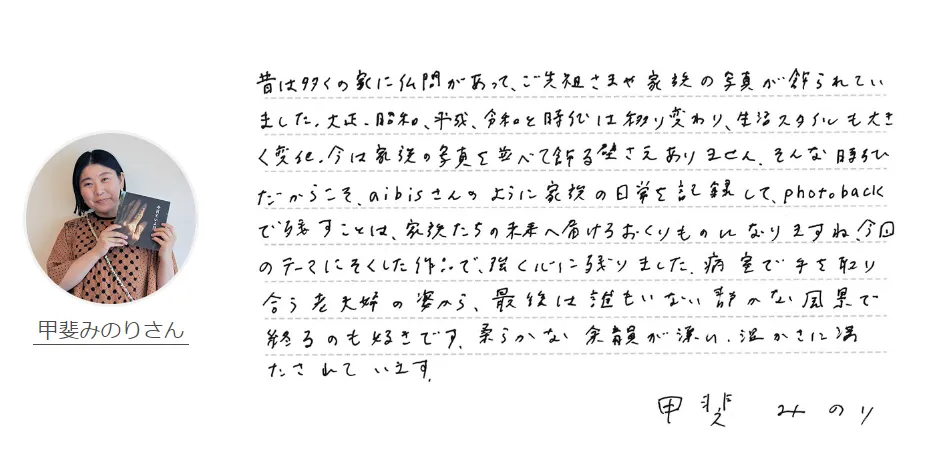 昔は多くの家に仏間があって、ご先祖さまや家族の写真が飾られてい
ました。大正、昭和、平成、令和と時代は移り変わり、生活スタイルも大き
く変化。今は家族の写真を並べて飾る壁さえありません。そんな時代
だからこそ、aibisさんのように家族の日常を記録して、photoback
で残すことは、家族たちの未来へ届けるおくりものになりますね。今回
のテーマにそくした作品で、強く心に残りました。病室で手を取り
合う老夫婦の姿から、最後は誰もいない静かな風景で
終るのも好きです。柔らかな余韻が漂い、温かさに満
たされています。
甲斐 みのり
甲斐みのりさん